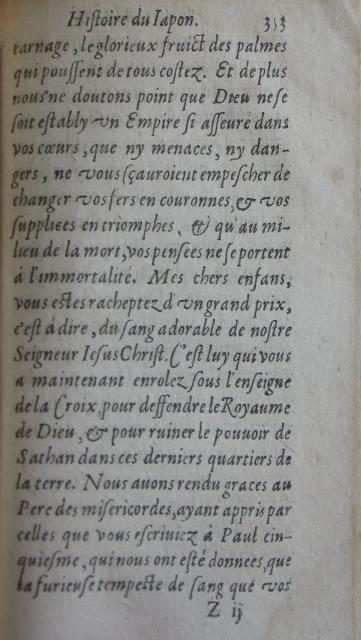 Hiſtoire du Iapon. 313
carnage, le glorieux fruict des palmes
qui pouſſent de tous coſtez. Et de plus
nous ne doutons point que Dieu ne ſe
ſoit eſtably vn Empire ſi aſſeuré dans
vos cœurs, que ny menaces, ny dan-
gers, ne vous ſçauroient empeſcher de
changer vos fers en couronnes, & vos
ſupplices en triomphes, & qu'au mi-
lieu de la mort, vos penſées ne ſe portent
à l'immortalité. Mes chers enfans,
vous eſtes racheptez d'vn grand prix,
c'eſt à dire, du ſang adorable de noſtre
Seigneur Ieſus Chriſt. C'eſt luy qui vous
a maintenant enrolez ſous l'enſeigne
de la Croix, pour deffendre le Royaume
de Dieu, & pour ruiner le pouuoir de
Sathan dans ces derniers quartiers de
la terre. Nous auons rendu graces au
Pere des miſericordes, ayant appris par
celles que vous eſcriuiez à Paul cin-
quieſme, qui nous ont eſté données, que
la furieuſe tempeſte de ſang que vos
Z ij